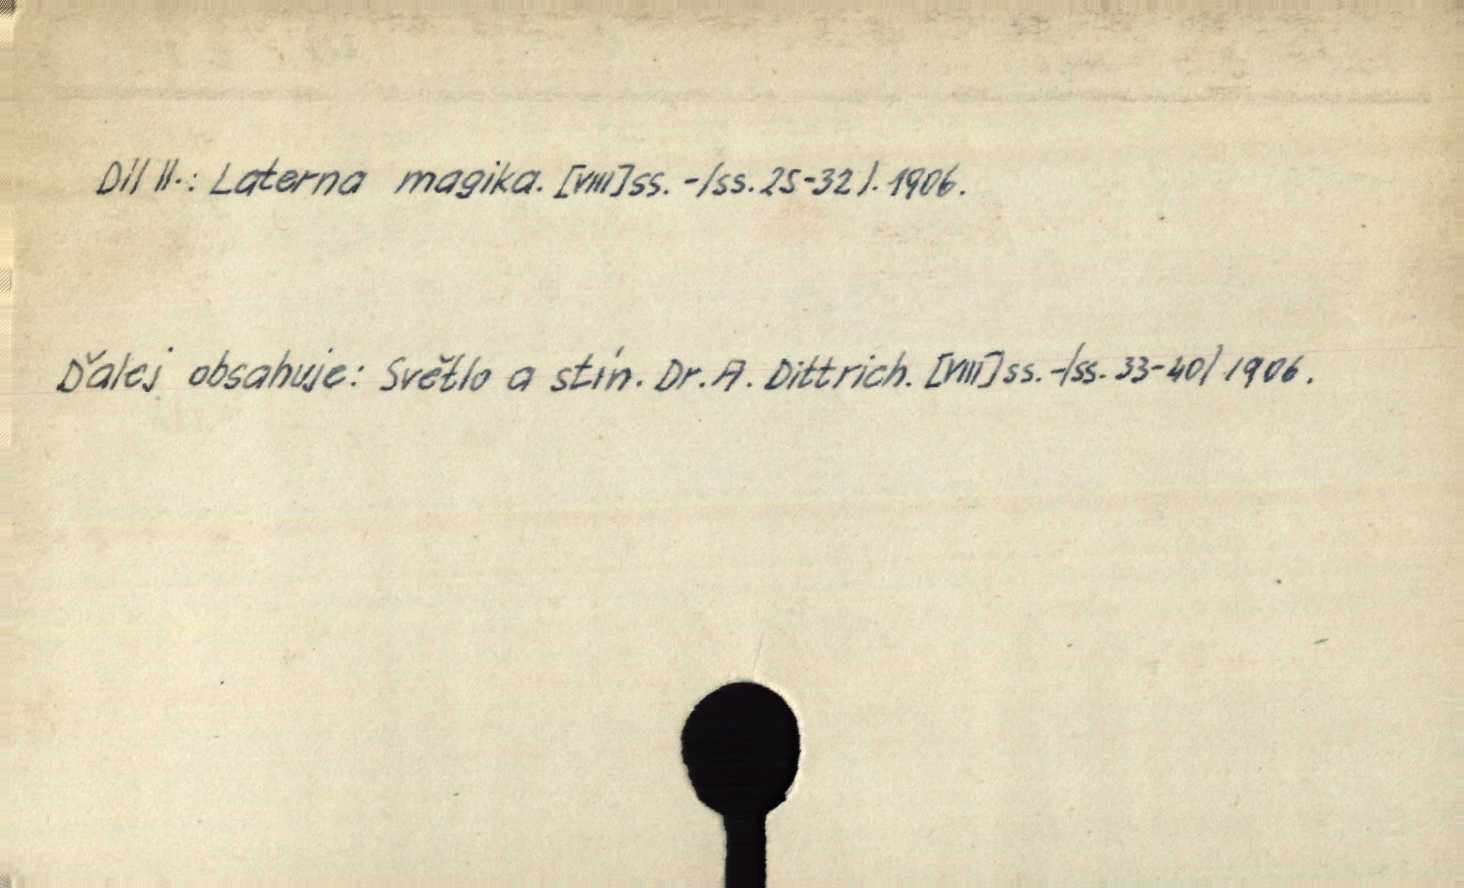 Díl II.: Laterna magika. [VIII] ss. -/ss. 25-32/. 1906.
Ďalej obsahuje: Světlo a stín. Dr. A. Dittrich. [VIII] ss. -/ss. 33-40/ 1906.